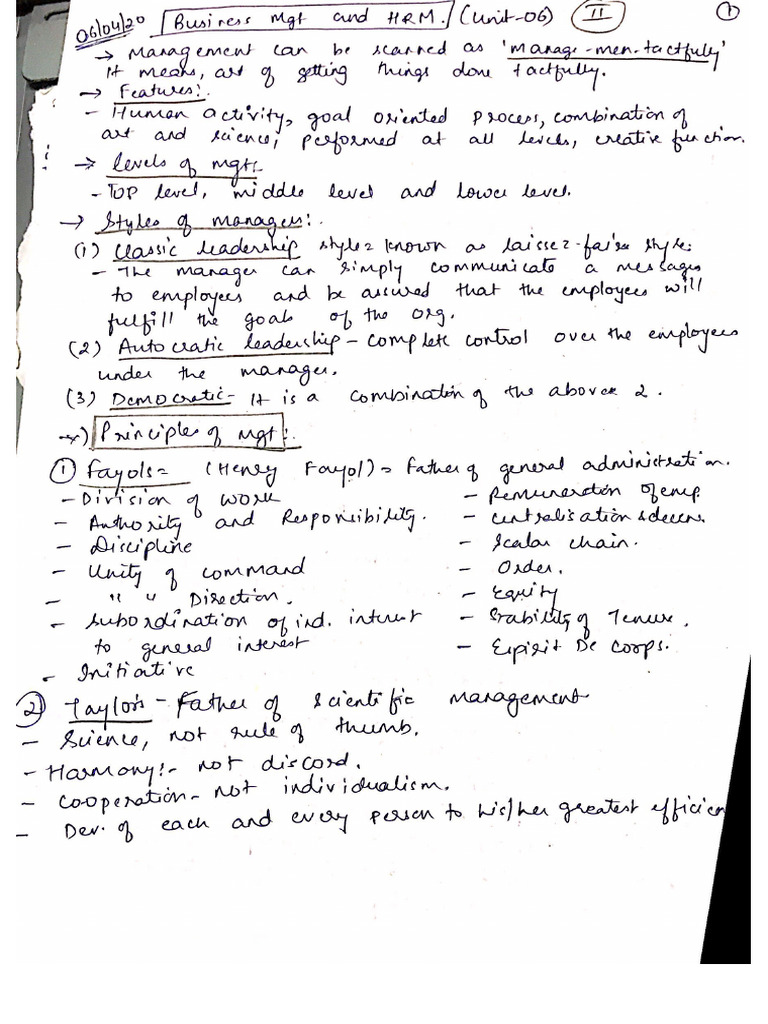 06/04/20 Business Mgt and HRM. (Unit-06) II 1
→ Management can be scanned as 'manage-men-tactfully'
It means, art of getting things done tactfully.
→ Features:-
- Human activity, goal oriented process, combination of
art and science, performed at all levels, creative function.
→ Levels of mgt:-
- TOP level, middle level and lower level.
→ Styles of managers:-
(1) Classic leadership style = known as laissez-faire style.
- The manager can simply communicate a messages
to employees and be assured that the employees will
fulfill the goals of the org.
(2) Autocratic leadership - complete control over the employees
under the manager.
(3) Democratic - It is a combination of the above 2.
Principles of mgt:-
① Fayols = (Henry Fayol) = Father of general administration.
- Division of work
- Authority and Responsibility.
- Discipline
- Unity of command
- " " Direction.
- Subordination of ind. interest
to general interest
- Initiative
- Remuneration of emp.
- centralisation & decen.
- Scalar chain.
- Order.
- Equity
- Stability of Tenure.
- Espirit De Coops.
② Taylor's - Father of scientific management
- Science, not rule of thumb.
- Harmony:- not discord.
- Cooperation - not individualism.
- Dev. of each and every person to his/her greatest efficien